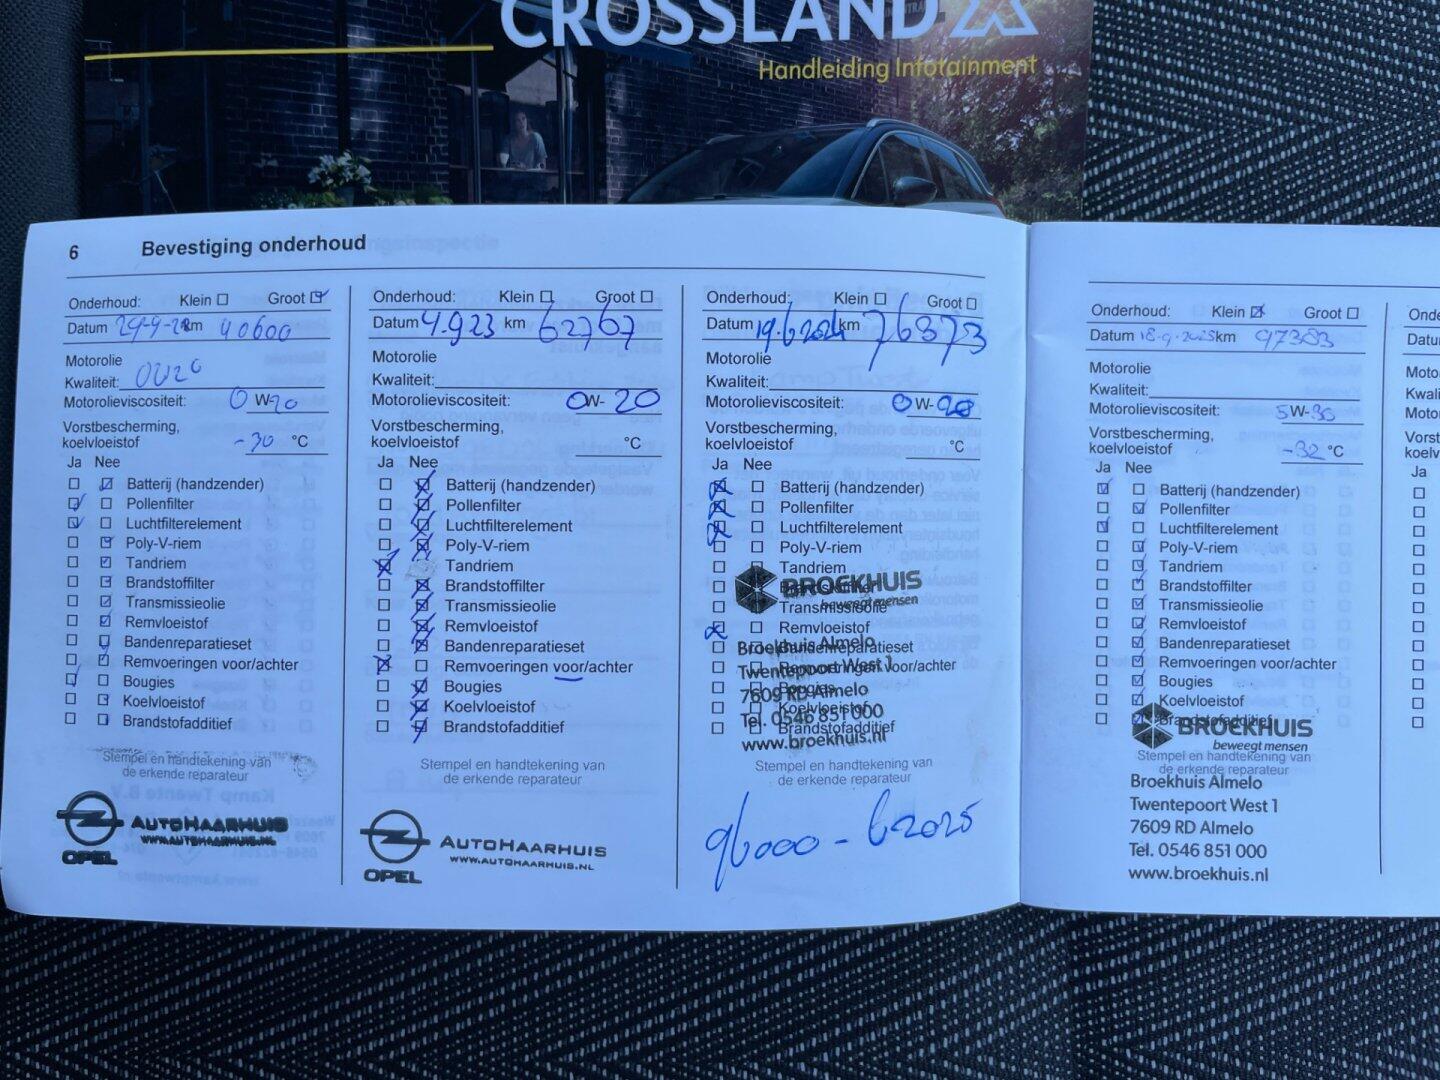 CROSSLAND X
Handleiding Infotainment
6 Bevestiging onderhoud
Onderhoud: Klein Groot
Datum km 40600
Motorolie
Kwaliteit: 0W20
Motorolieviscositeit: 0 W-20
Vorstbescherming,
koelvloeistof -30 °C
Ja Nee
Batterij (handzender)
Pollenfilter
Luchtfilterelement
Poly-V-riem
Tandriem
Brandstoffilter
Transmissieolie
Remvloeistof
Bandenreparatieset
Remvoeringen voor/achter
Bougies
Koelvloeistof
Brandstofadditief
Stempel en handtekening van
de erkende reparateur
AUTOHAARHUIS
WWW.AUTOHAARHUIS.NL
OPEL
Onderhoud: Klein Groot
Datum 4.9.23 km 62767
Motorolie
Kwaliteit:
Motorolieviscositeit: 0W- 20
Vorstbescherming,
koelvloeistof °C
Ja Nee
Batterij (handzender)
Pollenfilter
Luchtfilterelement
Poly-V-riem
Tandriem
Brandstoffilter
Transmissieolie
Remvloeistof
Bandenreparatieset
Remvoeringen voor/achter
Bougies
Koelvloeistof
Brandstofadditief
Stempel en handtekening van
de erkende reparateur
AUTOHAARHUIS
WWW.AUTOHAARHUIS.NL
OPEL
Onderhoud: Klein Groot
Datum 19.6.2024 km 76373
Motorolie
Kwaliteit:
Motorolieviscositeit: 0 W-20
Vorstbescherming,
koelvloeistof °C
Ja Nee
Batterij (handzender)
Pollenfilter
Luchtfilterelement
Poly-V-riem
Tandriem
BROEKHUIS
beweegt mensen
Transmissieolie
Remvloeistof
Broekhuis Almelo
Bandenreparatieset
Twentepoort West 1
Remvoeringen voor/achter
7609 RD Almelo
Bougies
Koelvloeistof
Tel. 0546 851 000
Brandstofadditief
www.broekhuis.nl
Stempel en handtekening van
de erkende reparateur
96000 - 6 2025
Onderhoud: Klein Groot
Datum 18-9-2025 km 97383
Motorolie
Kwaliteit:
Motorolieviscositeit: 5 W-30
Vorstbescherming,
koelvloeistof -32 °C
Ja Nee
Batterij (handzender)
Pollenfilter
Luchtfilterelement
Poly-V-riem
Tandriem
Brandstoffilter
Transmissieolie
Remvloeistof
Bandenreparatieset
Remvoeringen voor/achter
Bougies
Koelvloeistof
Brandstofadditief
BROEKHUIS
beweegt mensen
Stempel en handtekening van
de erkende reparateur
Broekhuis Almelo
Twentepoort West 1
7609 RD Almelo
Tel. 0546 851 000
www.broekhuis.nl
Ja